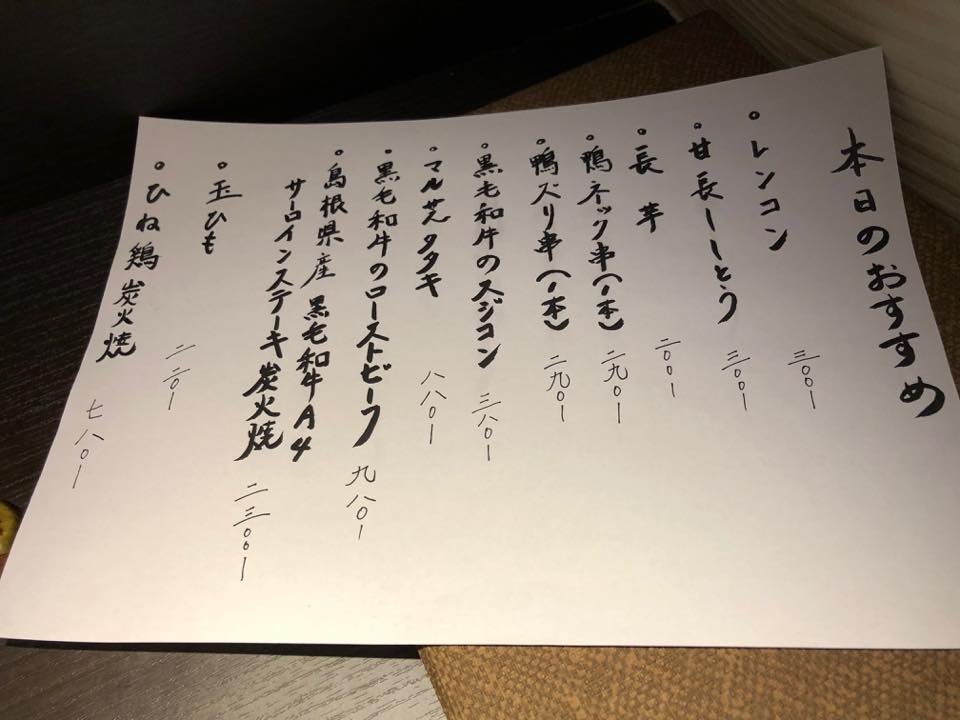 本日のおすすめ
。レンコン 三〇〇ー
。甘長しとう 三〇〇ー
。長芋 二〇〇ー
。鴨ネック串(1本) 二九〇ー
。鴨ズリ串(1本) 二九〇ー
。黒毛和牛のスジコン 三八〇ー
。マル芝タタキ 八八〇ー
。黒毛和牛のローストビーフ 九八〇ー
。島根県産 黒毛和牛A4
サーロインステーキ 炭火焼 二三〇〇ー
。玉ひも 二二〇ー
。ひね鶏 炭火焼 七八〇ー